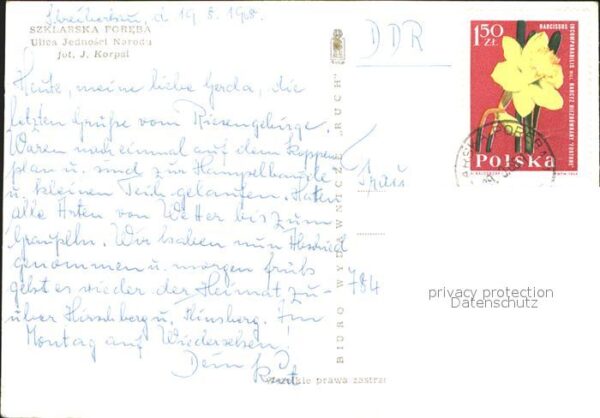 Schreiberhau, d. 19.5.1968.
SZKLARSKA PORĘBA
Ulica Jedności Narodu
fot. J. Korpal
Heute, meine liebe Gerda, die
letzten Grüße vom Riesengebirge.
Waren noch einmal auf dem Koppen-
plan u. sind zur Hampelbaude
u. kleinen Teich gelaufen. Hatten
alle Arten von Wetter bis zum
Graupeln. Wir haben nun Abschied
genommen u. morgen früh
geht es wieder der Heimat zu-
über Hirschberg u. Flinsberg. Im
Montag auf Wiedersehen!
Dein Kurt
BIURO WYDAWNICZE „RUCH"
Wszelkie prawa zastrz
DDR
Frau
784
1,50 ZŁ
NARCISSUS
INCOMPARABILIS
NARCYZ NIEZRÓWNANY
POLSKA
privacy protection
Datenschutz